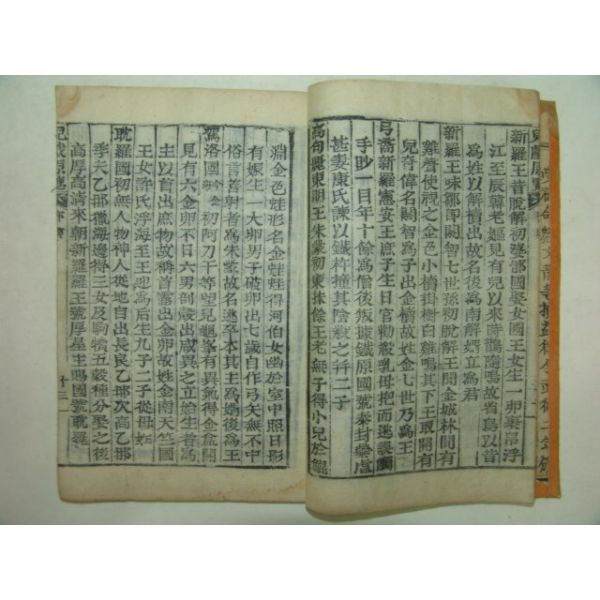 新羅王昔脫解初婆那國娶女國王女生一卵棄
江至辰韓老嫗見有兒以來時鵲隨鳴故省鳥以昔
爲姓以解櫝出故名後爲南解婿立爲君
新羅王味鄒卽閼智七世孫初脫解王聞金城林間有
雞聲使視之金色小櫝掛樹白雞鳴其下王取開有
兒奇偉名閼智爲子出金櫝故姓金七世乃爲王
弓裔新羅憲安王庶子生日官勸殺乳母抱而逃誤觸
手眇一目年十餘爲僧後叛據鐵原國號泰封
甚妻康氏諫以鐵杵撞其陰殺之幷二子
高句麗東明王朱蒙初東扶餘王老無子得小兒於鯤
淵金色蛙形名金蛙蛙得河伯女幽於室中照日影
有娠生一大卵男子破卵出七歲自作弓矢無不中
俗言善射者爲朱蒙故名逃卒本其主爲婿後爲王
駕洛國 初阿刀干等望見龜峯有異氣得金盒開
見有六金卵不日六男剖殼出咸異之立始生者爲
主以首出庶物故稱首露出金卵故姓金南天竺國
王女許氏浮海至王迎爲后生九子二子從母姓
耽羅國初無人物神人從地出長良乙那次高乙那
季夫乙那獵海邊得三女及駒犢五穀種分娶之後
高厚高淸來朝新羅羅王號厚星主賜國號耽羅